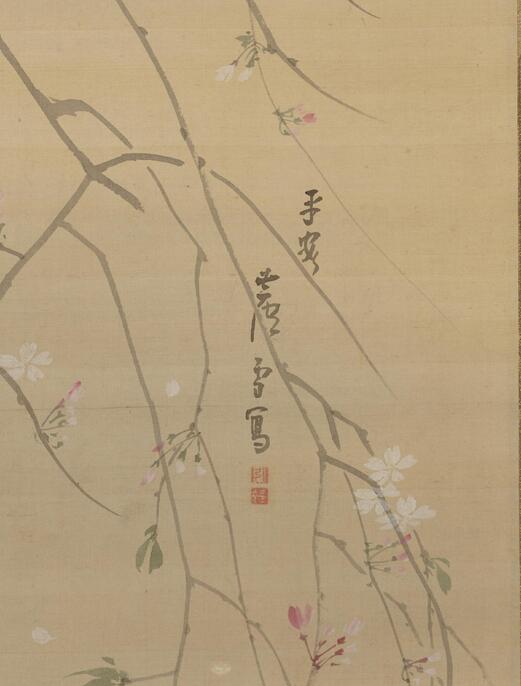 平安
蘆雪寫